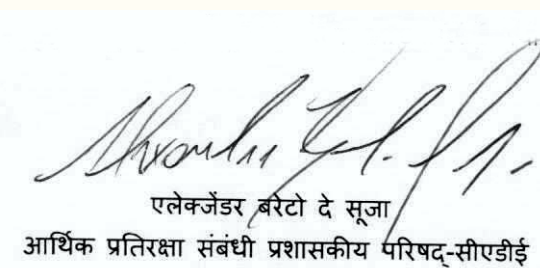 एलेक्जेंडर बरेटो दे सूजा
आर्थिक प्रतिरक्षा संबंधी प्रशासकीय परिषद्-सीएडीई